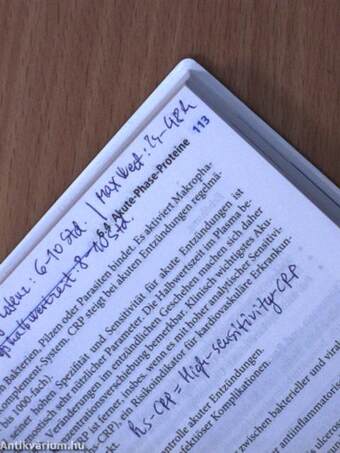 113
Max Wert: 24-48h
6-10 Std.
8-10 Std.
Akute-Phase-Proteine
Bakterien, Pilzen oder Parasiten bindet. Es aktiviert Makropha-
omplement-System. CRP steigt bei akuten Entzündungen regelmä-
bis 1000-fach).
einer hohen Spezifität und Sensitivität für akute Entzündungen ist
ostisch sehr nützlicher Parameter. Die Halbwertszeit im Plasma be-
Veränderungen im entzündlichen Geschehen machen sich daher
onzentrationsverschiebung bemerkbar. Klinisch wichtigstes Aku-
ist ferner, indes, wenn es mit hoher analytischer Sensitivi-
-CRP), ein Risikoindikator für kardiovaskuläre Erkrankun-
kt.
hs-CRP = High-sensitivity-CRP
ontrolle akuter Entzündungen.
fektiöser Komplikationen.
zwischen bakterieller und viral
r antiinflammatoris
Antikvarium.hu